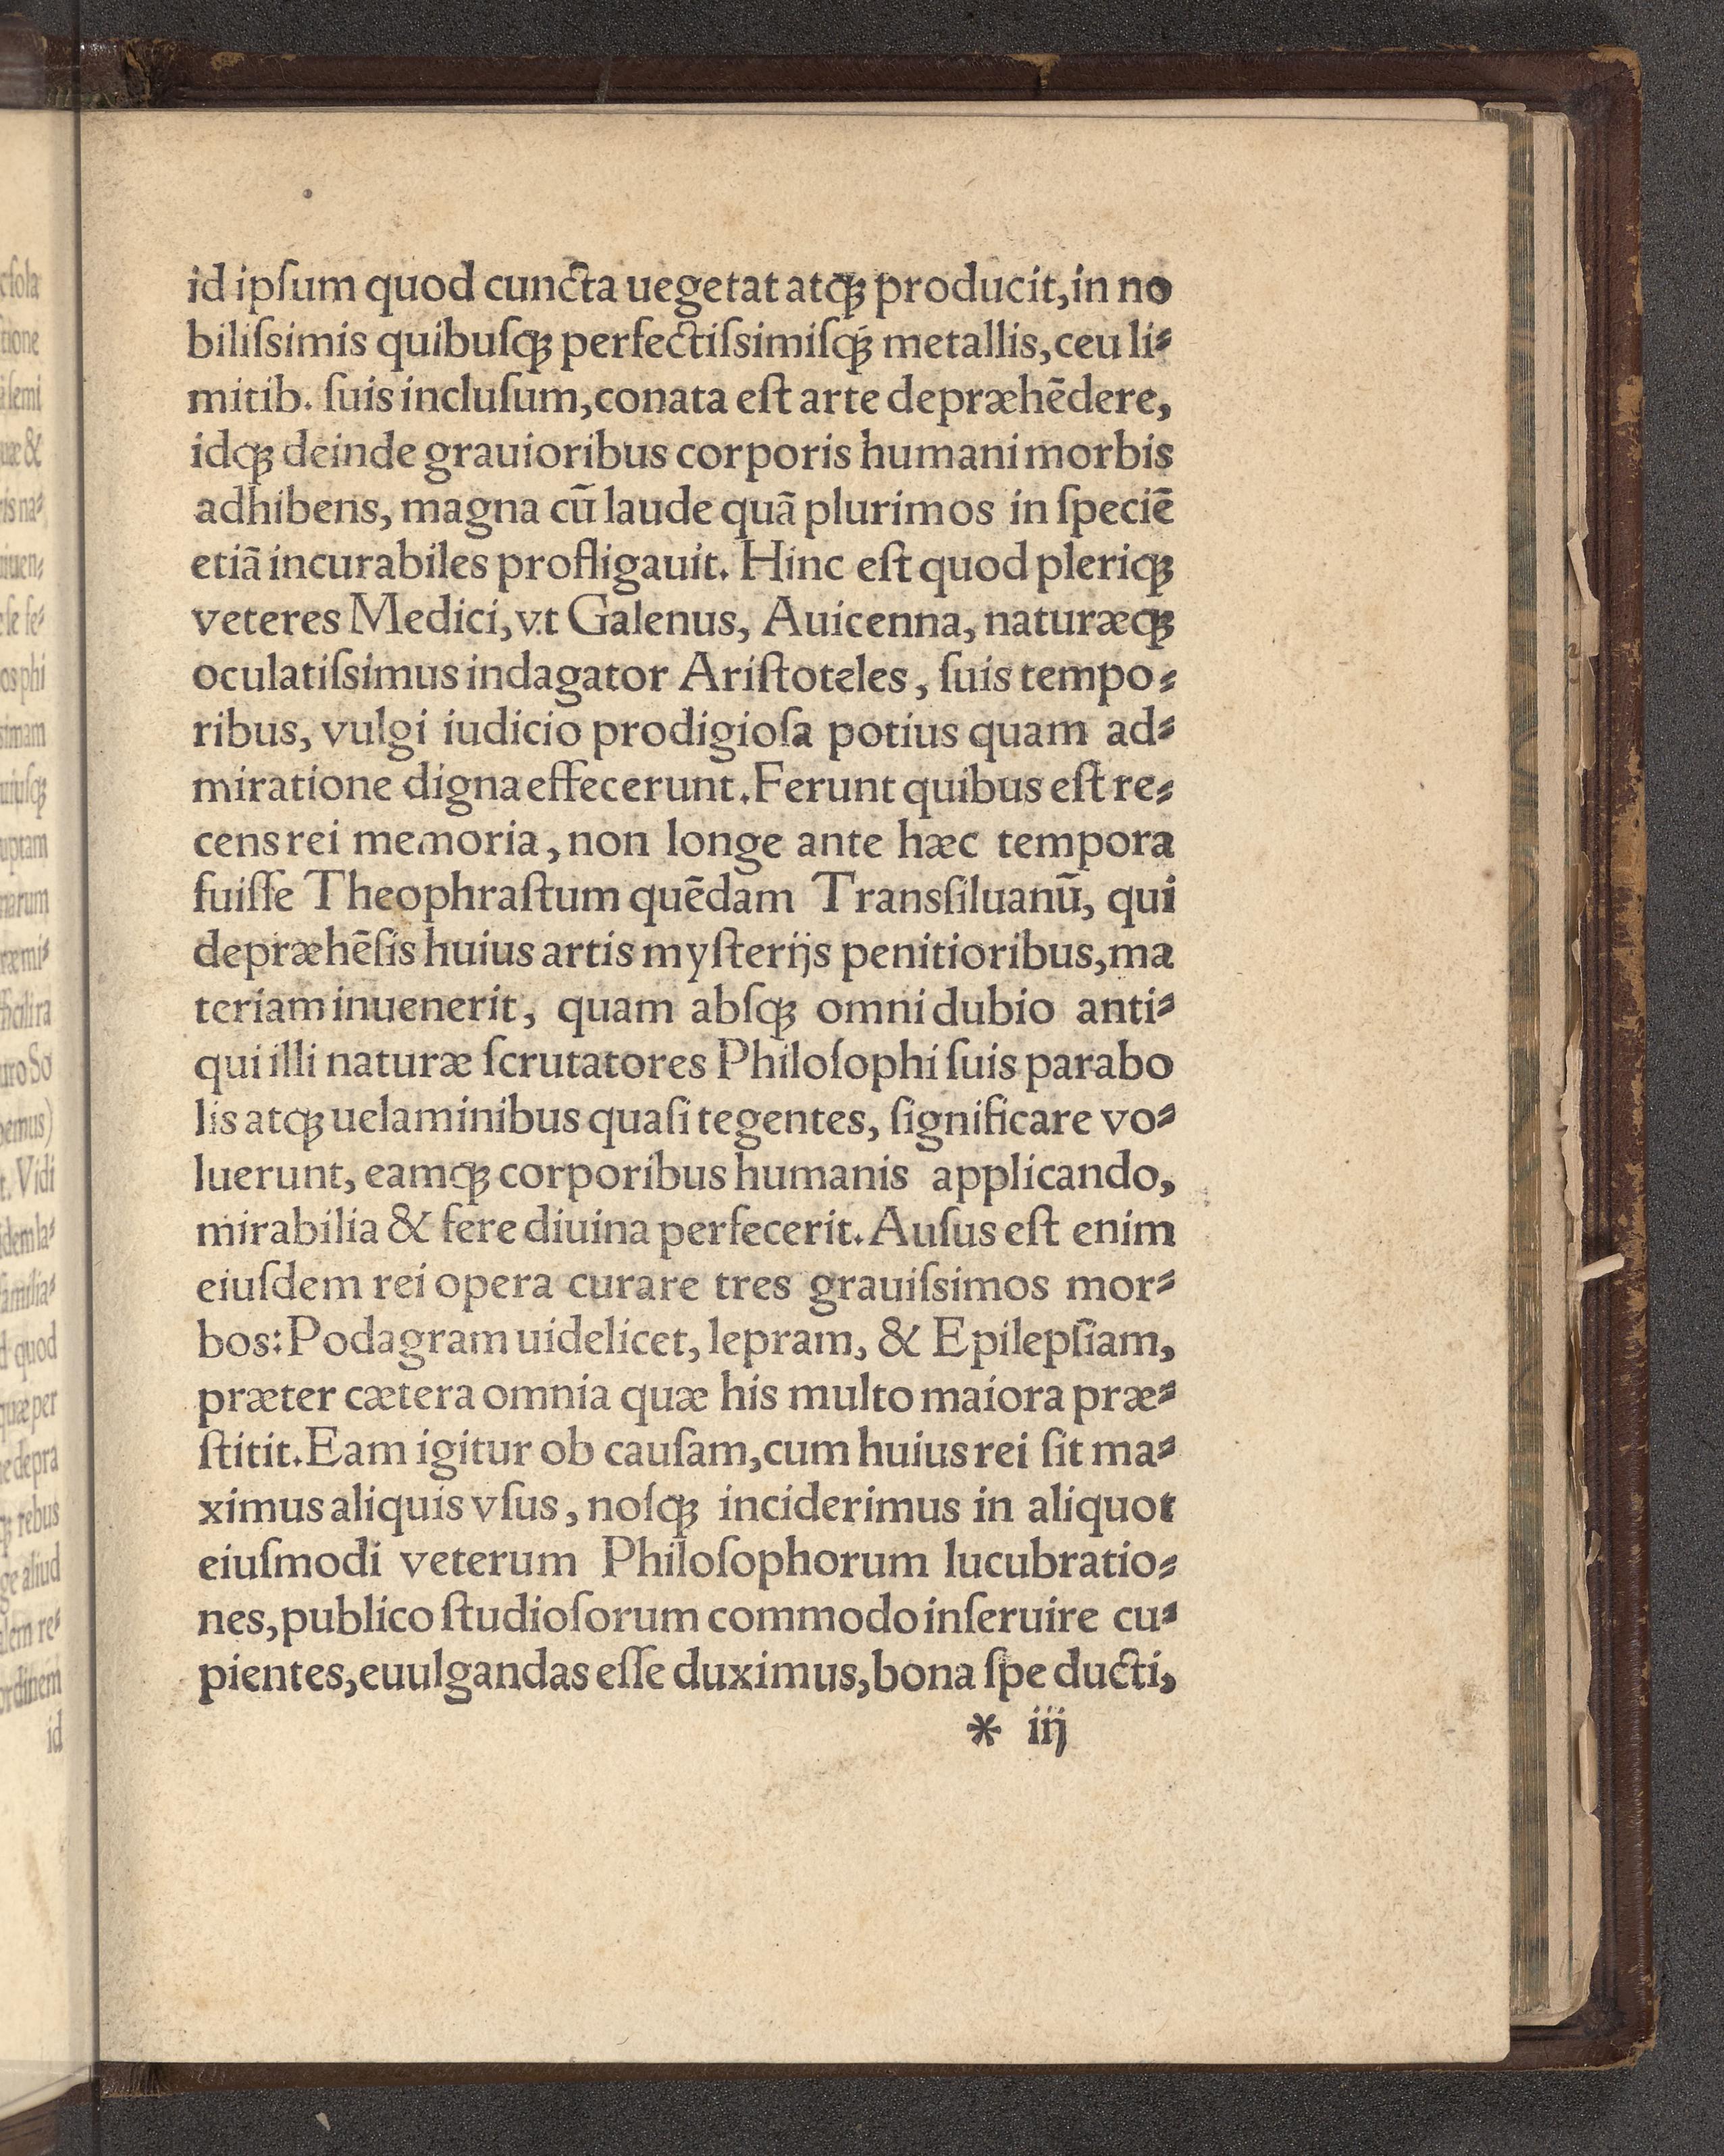 id ipſum quod cuncta uegetat atqꝫ producit, in no
biliſsimis quibuſqꝫ perfectiſsimiſqꝫ metallis, ceu li⸗
mitib. ſuis incluſum, conata eſt arte depræhēdere,
idqꝫ deinde grauioribus corporis humani morbis
adhibens, magna cū laude quā plurimos in ſpeciē
etiā incurabiles profligauit. Hinc eſt quod pleriqꝫ
veteres Medici, vt Galenus, Auicenna, naturæqꝫ
oculatiſsimus indagator Ariſtoteles, ſuis tempo⸗
ribus, vulgi iudicio prodigioſa potius quam ad⸗
miratione digna effecerunt. Ferunt quibus eſt re⸗
cens rei memoria, non longe ante hæc tempora
fuiſſe Theophraſtum quēdam Transſiluanū, qui
depræhēſis huius artis myſterijs penitioribus, ma
teriam inuenerit, quam abſqꝫ omni dubio anti⸗
qui illi naturæ ſcrutatores Philoſophi ſuis parabo
lis atqꝫ uelaminibus quaſi tegentes, ſignificare vo⸗
luerunt, eamqꝫ corporibus humanis applicando,
mirabilia & fere diuina perfecerit. Auſus eſt enim
eiuſdem rei opera curare tres grauiſsimos mor⸗
bos: Podagram uidelicet, lepram, & Epilepſiam,
præter cætera omnia quæ his multo maiora præ⸗
ſtitit. Eam igitur ob cauſam, cum huius rei ſit ma⸗
ximus aliquis vſus, noſqꝫ inciderimus in aliquot
eiuſmodi veterum Philoſophorum lucubratio⸗
nes, publico ſtudioſorum commodo inſeruire cu⸗
pientes, euulgandas eſſe duximus, bona ſpe ducti,
* iij